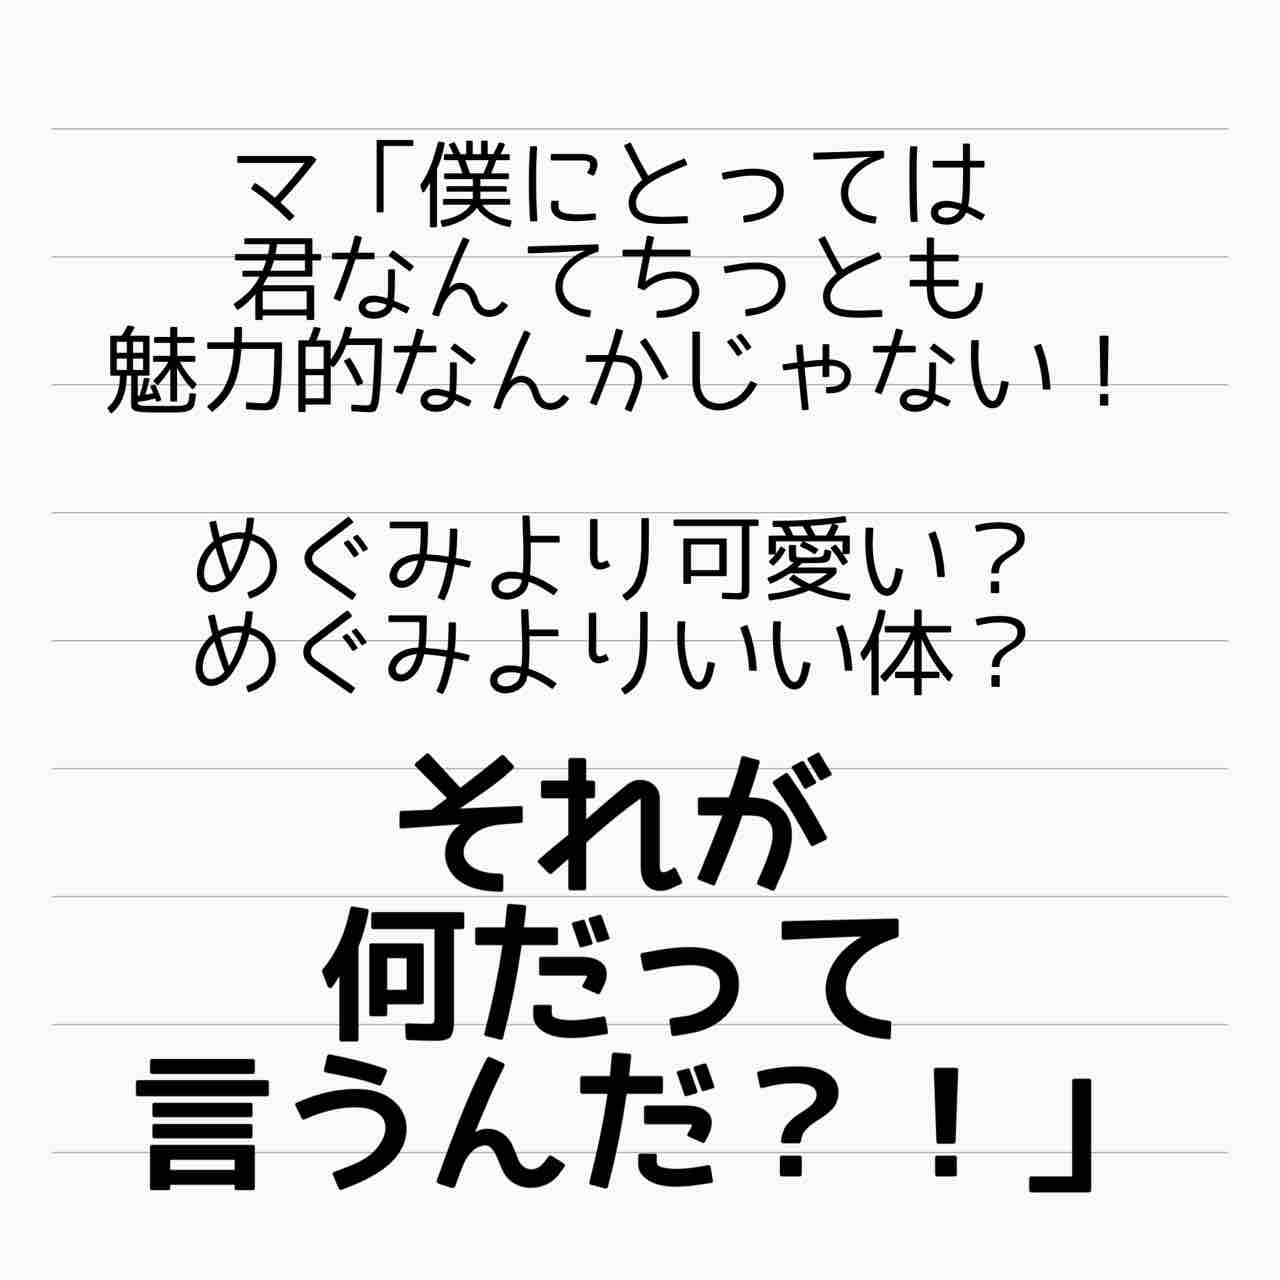 マ「僕にとっては
君なんてちっとも
魅力的なんかじゃない！
めぐみより可愛い？
めぐみよりいい体？
それが
何だって
言うんだ？！」